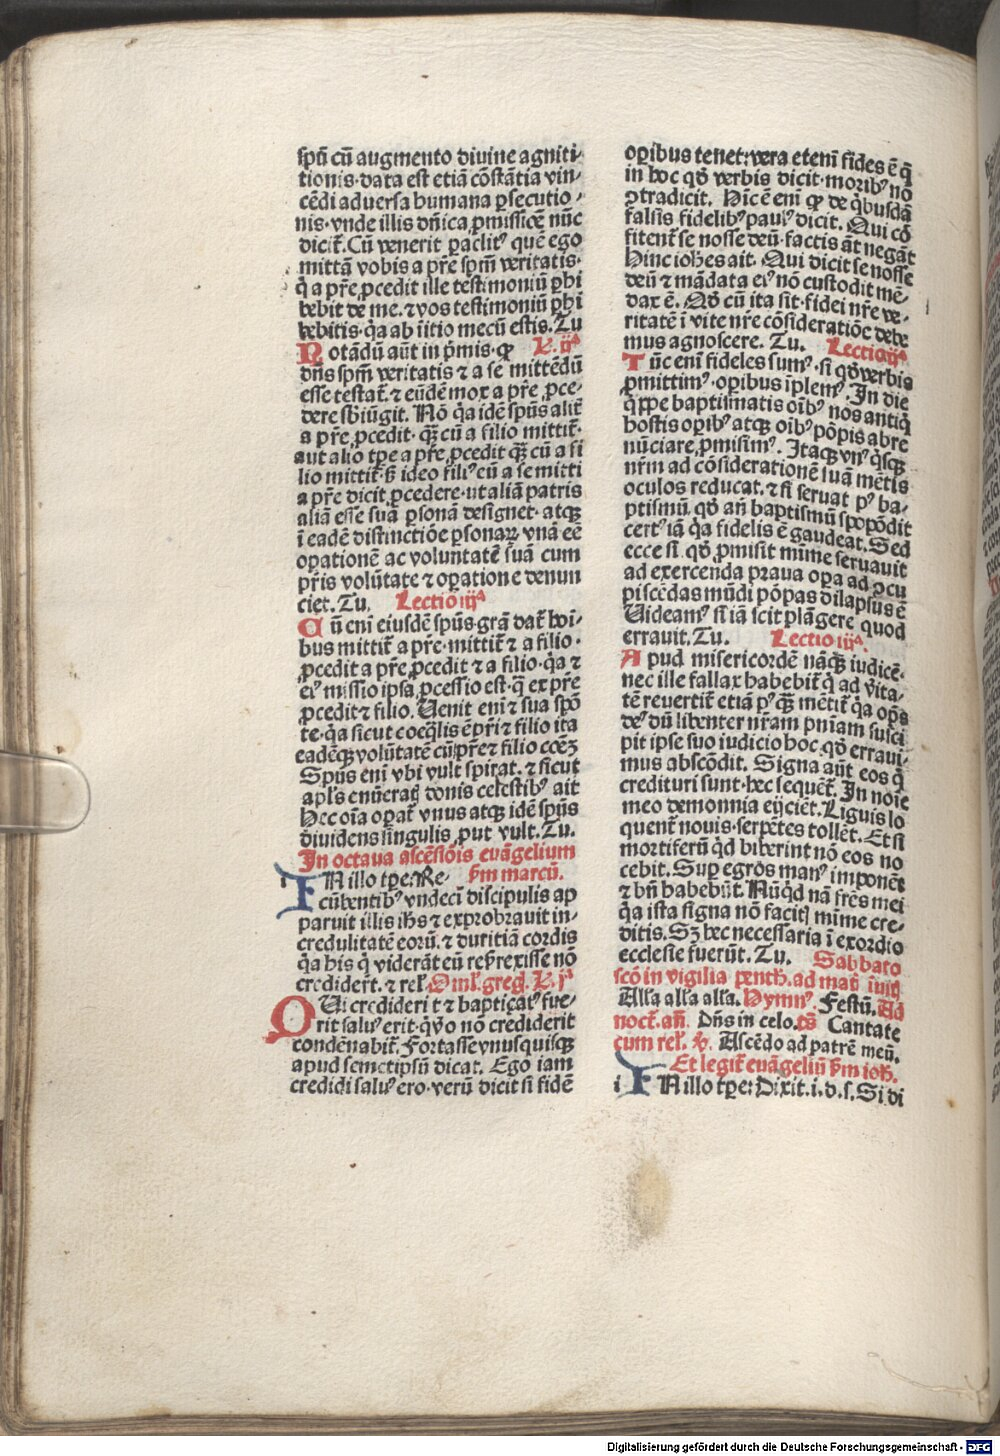 spū cū augmento diuine agniti⸗
tionis·data est etiā cōstātia vin⸗
cēdi aduersa humana ꝑsecutio⸗
nis·vnde illis dn̄ica ꝓmissiōe nūc
dicit̄. Cū venerit ꝑaclitꝰ quē ego
mittā vobis a pr̄e spm̄ veritatis·
q̇ a pr̄e ꝓcedit ille testimoniū ꝑhi
bebit de me. ⁊ vos testimoniū ꝑhi
bebitis·q̇a ab iītio mecū estis. Tu
Notādū aūt in p̄mis·ꝙ L. ijᵃ
dn̄s spm̄ veritatis ⁊ a se mittēdū
esse testat̄·⁊ eūdē mox a pr̄e ꝓce⸗
dere sb̄iūgit. Nō q̇a idē spūs alit̄
a pr̄e ꝓcedit·q̄ꝫ cū a filio mittit̄·
aut alio tꝑe a pr̄e ꝓcedit q̄ꝫ cū a fi
lio mittit̄·ß ideo filiꝰ cū a se mitti
a pr̄e dicit ꝓcedere·ut aliā patris
aliā esse suā ꝑsonā designet·atqꝫ
ī eadē distinctiōe ꝑsonaꝝ vnā eē
oꝑationē ac voluntatē suā cum
pr̄is volūtate ⁊ oꝑatione denun
ciet. Tu. Lectio iijᵃ
Cū enī eiusdē spūs gr̄a dat̄ hoī⸗
bus mittit̄ a pr̄e·mittit̄ ⁊ a filio·
ꝓcedit a pr̄e ꝓcedit ⁊ a filio·q̇a ⁊
eiꝰ missio ipsa ꝓcessio est·q̄ ex pr̄e
ꝓcedit ⁊ filio. Uenit enī ⁊ sua spō
te·q̇a sicut coeq̄lis ē pr̄i ⁊ filio ita
eadēqꝫ volūtatē cū pr̄e ⁊ filio cōēꝫ
Spūs enī vbi vult spirat·⁊ sicut
apl̄s enūeratꝭ donis celestibꝰ ait
Hec oīa oꝑat̄ vnus atqꝫ idē spūs
diuidens singulis ꝓut vult. Tu.
In octaua ascēsiōis euāgelium
IN illo tꝑe: Re⸗ ẜm marcū.
cūbentibꝰ vndeci discipulis ap
paruit illis ih̄s ⁊ exprobrauit in⸗
credulitatē eorū·⁊ duritiā cordis
q̇a his q̇ viderāt eū reſ̄rexisse nō
credidert̄. ⁊ relꝭ. Omlꝭ greg. L. jᵃ
QUi credideri t ⁊ baptiçatꝰ fue⸗
rit saluꝰ erit·q̇ v̄o nō crediderit
condēnabit̄. Fortasse vnusquisqꝫ
apud semetipsū dicat. Ego iam
credidi saluꝰ ero·verū dicit si fidē
oꝑibus tenet: vera etenī fides ē q̄
in hoc qd̄ verbis dicit·moribꝰ nō
ꝯtradicit. Hīc ē enī ꝙ de q̇busdā
falsis fidelibꝰ paulꝰ dicit. Qui cō
fitent̄ se nosse deū·factis āt negāt
Hinc ioh̄es ait. Qui dicit se nosse
deū ⁊ mādata eiꝰ nō custodit mē⸗
dax ē. Qd̄ cū ita sit·fidei nr̄e ve⸗
ritatē ī vite nr̄e cōsideratiōe debe
mus agnoscere. Tu. Lectio ijᵃ
Tūc enī fideles sumꝰ·si qd̄ verbis
ꝓmittimꝰ·oꝑibus īplemꝰ. In die
q̇ppe baptismatis oībꝰ nos antiq̇
hostis oꝑibꝰ atqꝫ oībꝰ pōpis abre
nūciare ꝓmisimꝰ. Itaqꝫ vnꝰ q̇sqꝫ
nr̄m ad cōsiderationē suā mētis
oculos reducat·⁊ si seruat pꝰ ba⸗
ptismū qd̄ an̄ baptismū spopōdit
certꝰ iā q̇a fidelis ē gaudeat. Sed
ecce si qd̄ ꝓmisit mīme seruauit
ad exercenda praua oꝑa ad ꝯcu
piscēdas mūdi pōpas dilapsus ē
Uideamꝰ si iā scit plāgere quod
errauit. Tu. Lectio iijᵃ.
Apud misericordē nāqꝫ iudicē·
nec ille fallax habebit̄ q̇ ad v̄ita⸗
tē reuertit̄ etiā pꝰ q̄ꝫ mētit̄·q̇a op̄s
deꝰ dū libenter nr̄am pn̄iam susci
pit ipse suo iudicio hoc qd̄ erraui⸗
mus abscōdit. Signa aūt eos q̇
credituri sunt·hec sequēt̄. In noīe
meo demonnia eijciēt. Liguis lo
quent̄ nouis·serpētes tollēt. Et si
mortiferū q̇d biberint nō eos no
cebit. Suꝑ egros manꝰ imponēt
⁊ bn̄ habebūt. Nūq̇d nā fr̄es mei
q̇a ista signa nō facitꝭ mīme cre⸗
ditis. Sꝫ hec necessaria ī exordio
ecclesie fuerūt. Tu. Sabbato
scō in vigilia penth̄. ad mat̄ īuitꝭ
All'a all'a all'a. Hymnꝰ. Festū. Ad
noct̄. an̄. Dn̄s in celo. ps̄ Cantate
cum relꝭ. v̄. Ascēdo ad patrē meū.
Et legit̄ euāgeliū ẜm ioh̄.
i IN illo tꝑe: Dixit. i. d. s. Si di
Digitalisierung gefördert durch die Deutsche Forschungsgemeinschaft - DFG